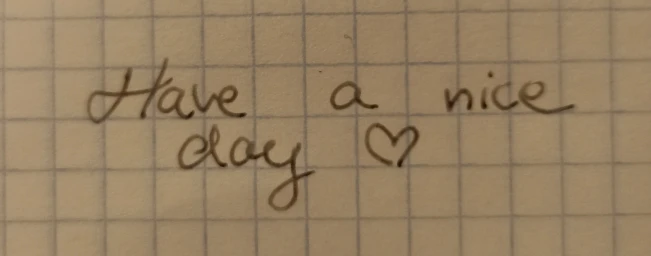 Have a nice
day ♡